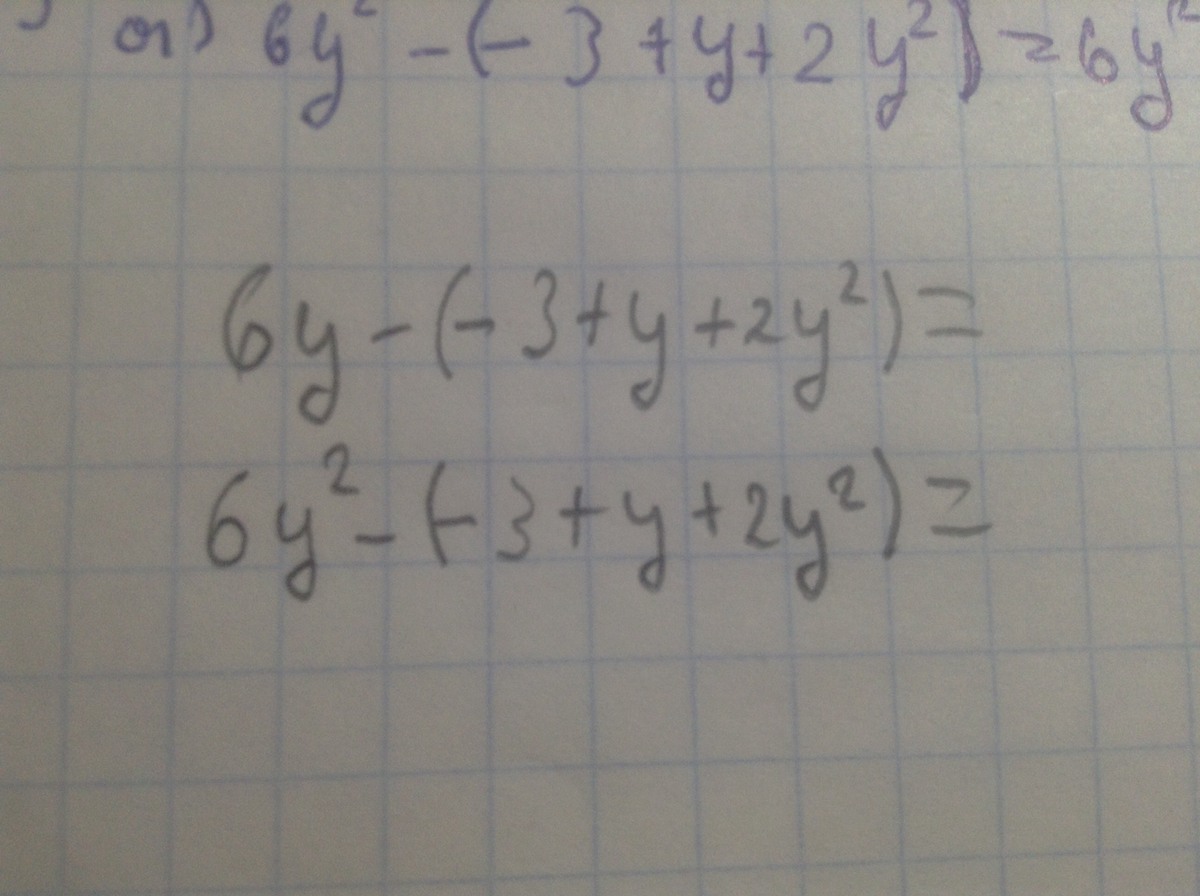 а) 6y² - (- 3 + y + 2y²) = 6y²
6y - (- 3 + y + 2y²) =
6y² - (- 3 + y + 2y²) =